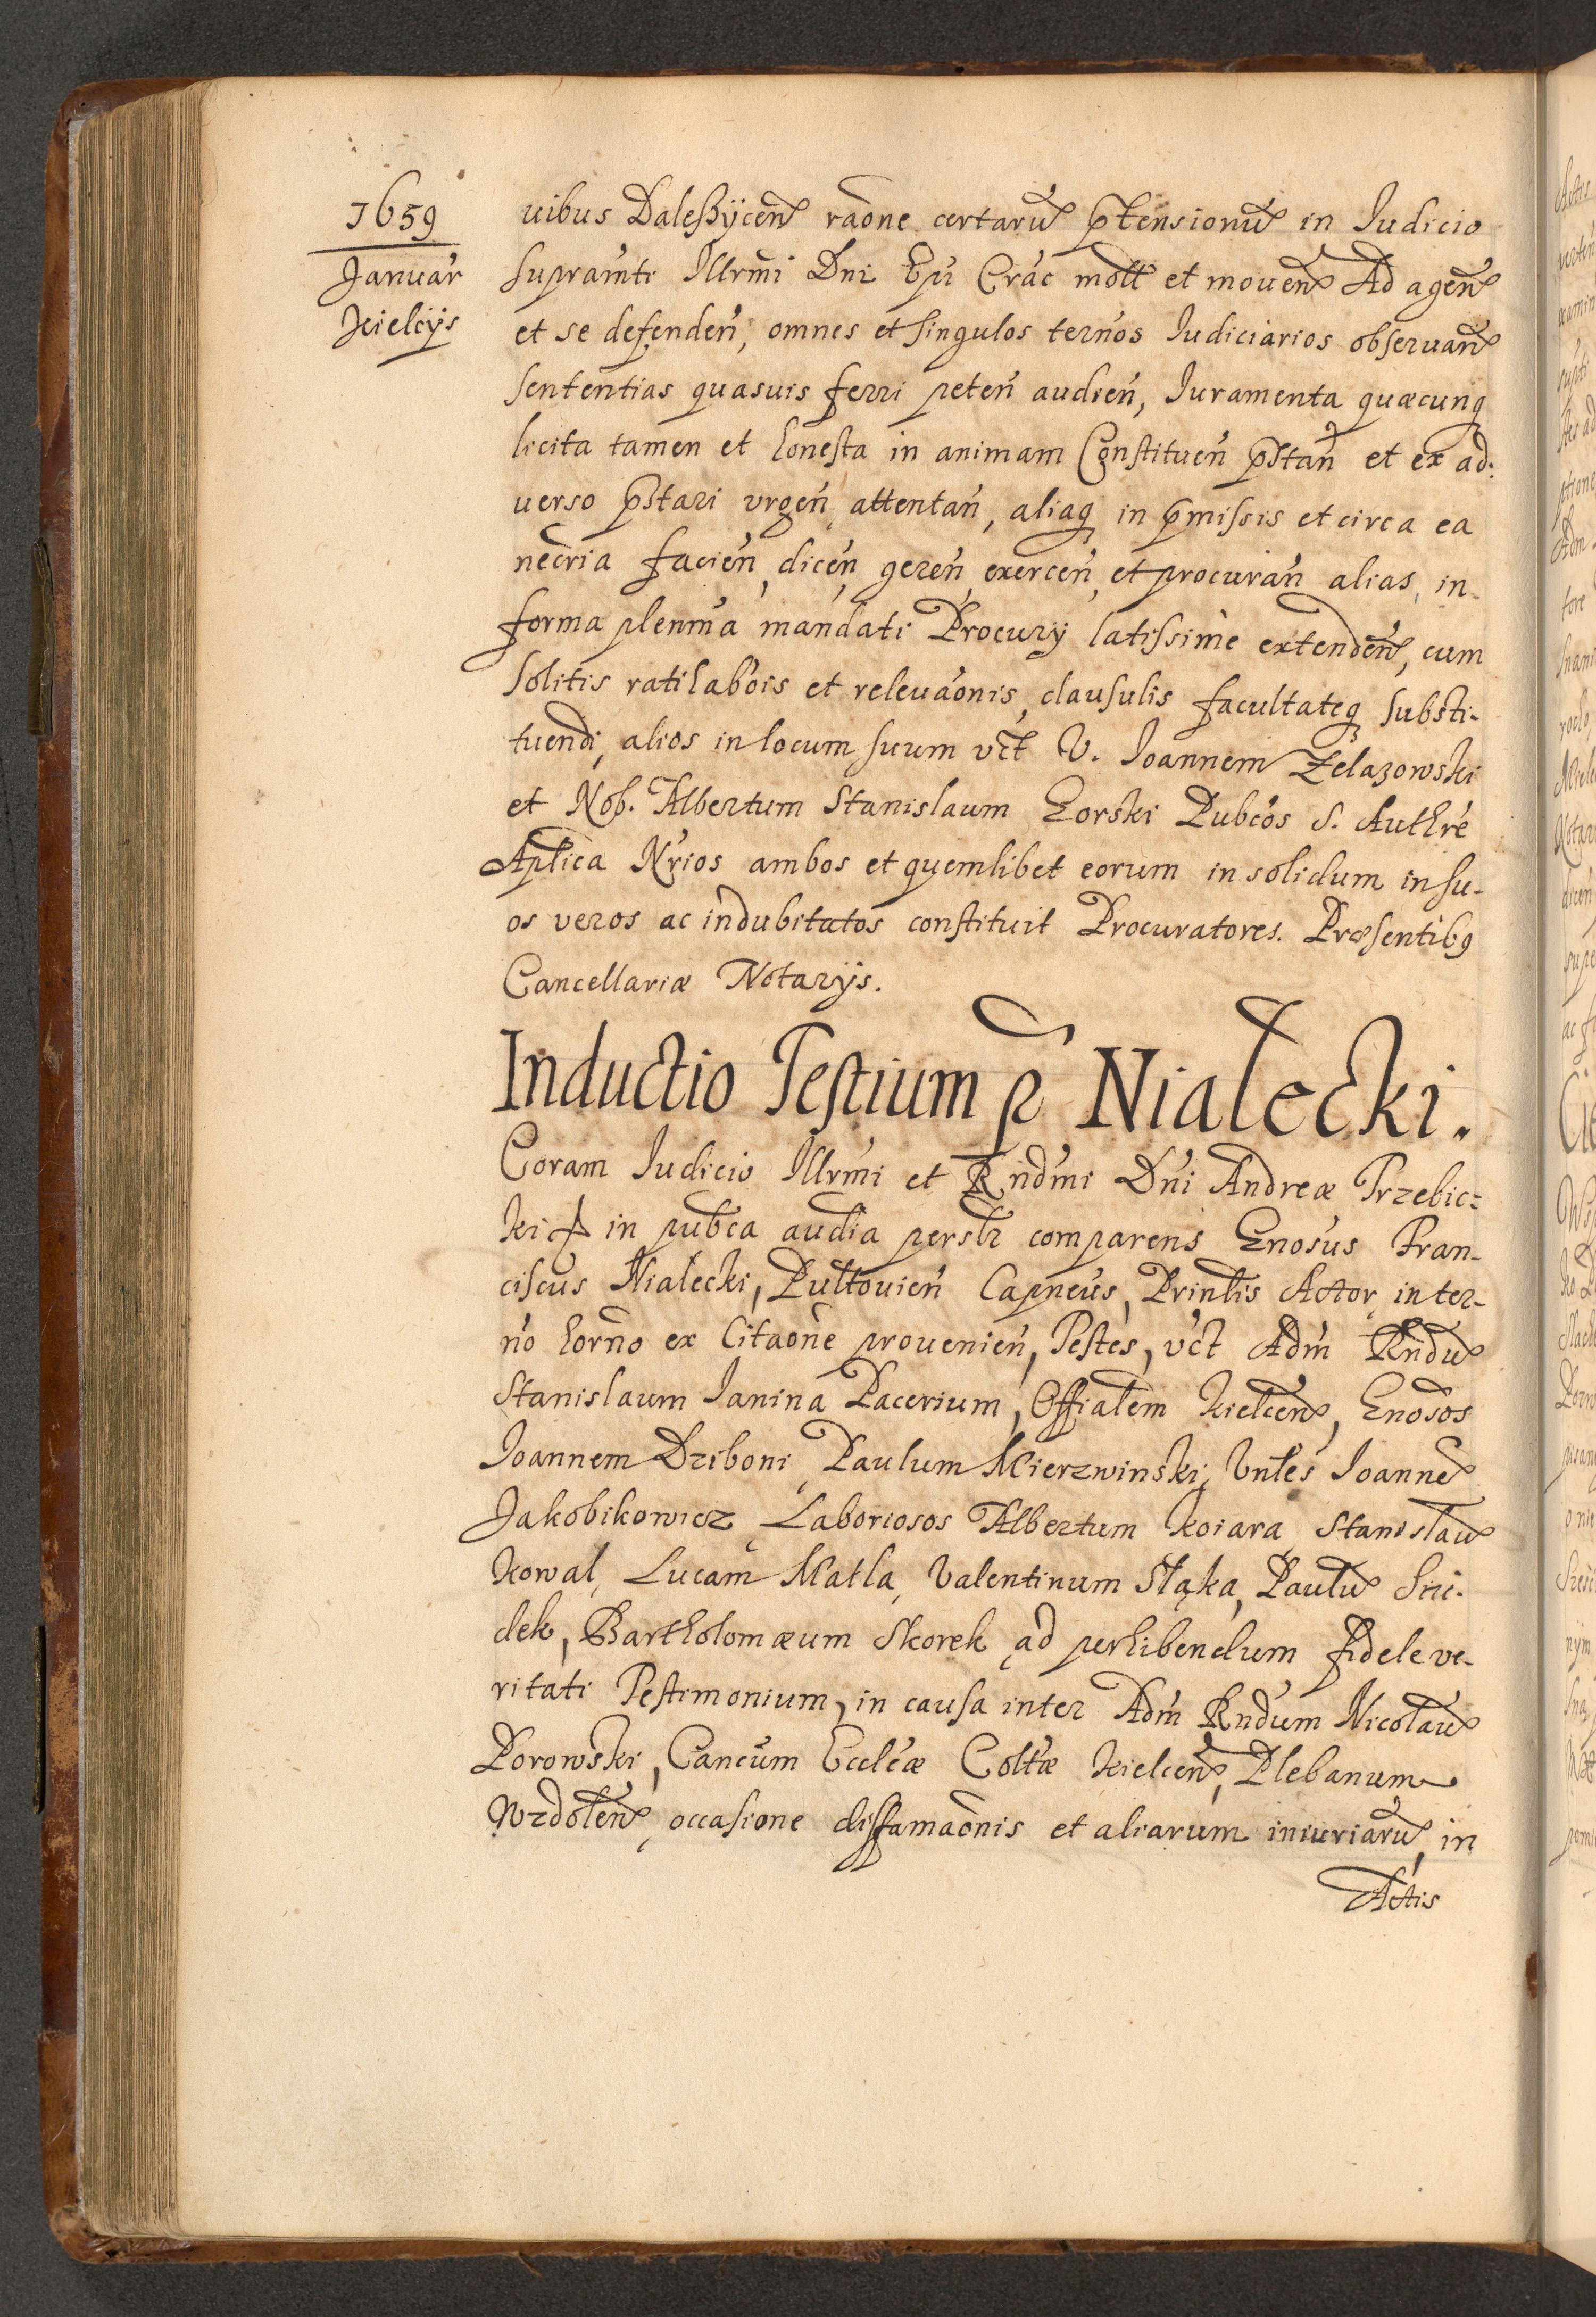 1659
Januar̃
Kielcijs
uibus Daleßÿceñ raõne certarũ p̃tensionũ in Iudicio
supram̃ti Illrm̃i Dni Ep̃i Crac̃ mott̃ et moueñ Ad ageñ
et se defendeñ, omnes et singulos term̃os Iudiciarios obseruañ
sententias quasuis ferri peteñ audieñ, Iuramenta quæcunq̃
licita tamen et honesta in animam Constitueñ p̃stañ et ex ad:
uerso p̃stari vrgeñ attentañ, aliaq̃ in p̃missis et circa ea
nec̃ria facieñ, diceñ, gereñ, exerceñ, et procurañ alias, in-
forma plenm̃a mandati Procurÿ latissime extendeñ, cum
solitis ratihab̃ois et releuaõnis, clausulis facultateq̃ substi-
tuendi, alios in locum suum vc̃t V. Ioannem Żelazowski
et Nob. Albertum Stanislaum Gorski Pubc̃os S. Authrẽ
Aplĩca Nr̃ios ambos et quemlibet eorum in solidum in su-
os veros ac indubitatos constituit Procuratores. Præsentibq
Cancellariæ Notarÿs.
Inductio Testium p̃ Nialecki.
Coram Iudicio Illrm̃i et Rndm̃i Dñi Andreæ Trzebic=
ki in pubc̃a audĩa persl̃r comparens Gnosũs Fran-
ciscus Nialecki, Pultouieñ Capneũs, Prinlĩs Actor in ter-
no hornõ ex Citaõne prouenieñ, Testes, vc̃t Adm̃ Rndũ
Stanislaum Ianina Pacerium, Offialem Kielceñ, Gnosõs
Ioannem Dziboni Paulum Mierzwinski, Vnlẽs Ioannẽ
Jakobikowicz Laboriosos Albertum Koiara Stanislaũ
Kowal, Lucam Matla, Valentinum Słąka, Paulũ Sni-
dek, Bartholomæum Skorek ad perhibendum fidele ve-
ritati Testimonium, in causa inter Adm̃ Rndũm Nicolaũ
Dorowski, Cancũm Ecclẽæ Coltæ̃ Kielceñ, Plebanum
Wzdoleñ occasione diffamaõnis et aliarum iniuriarũ, in
Actis